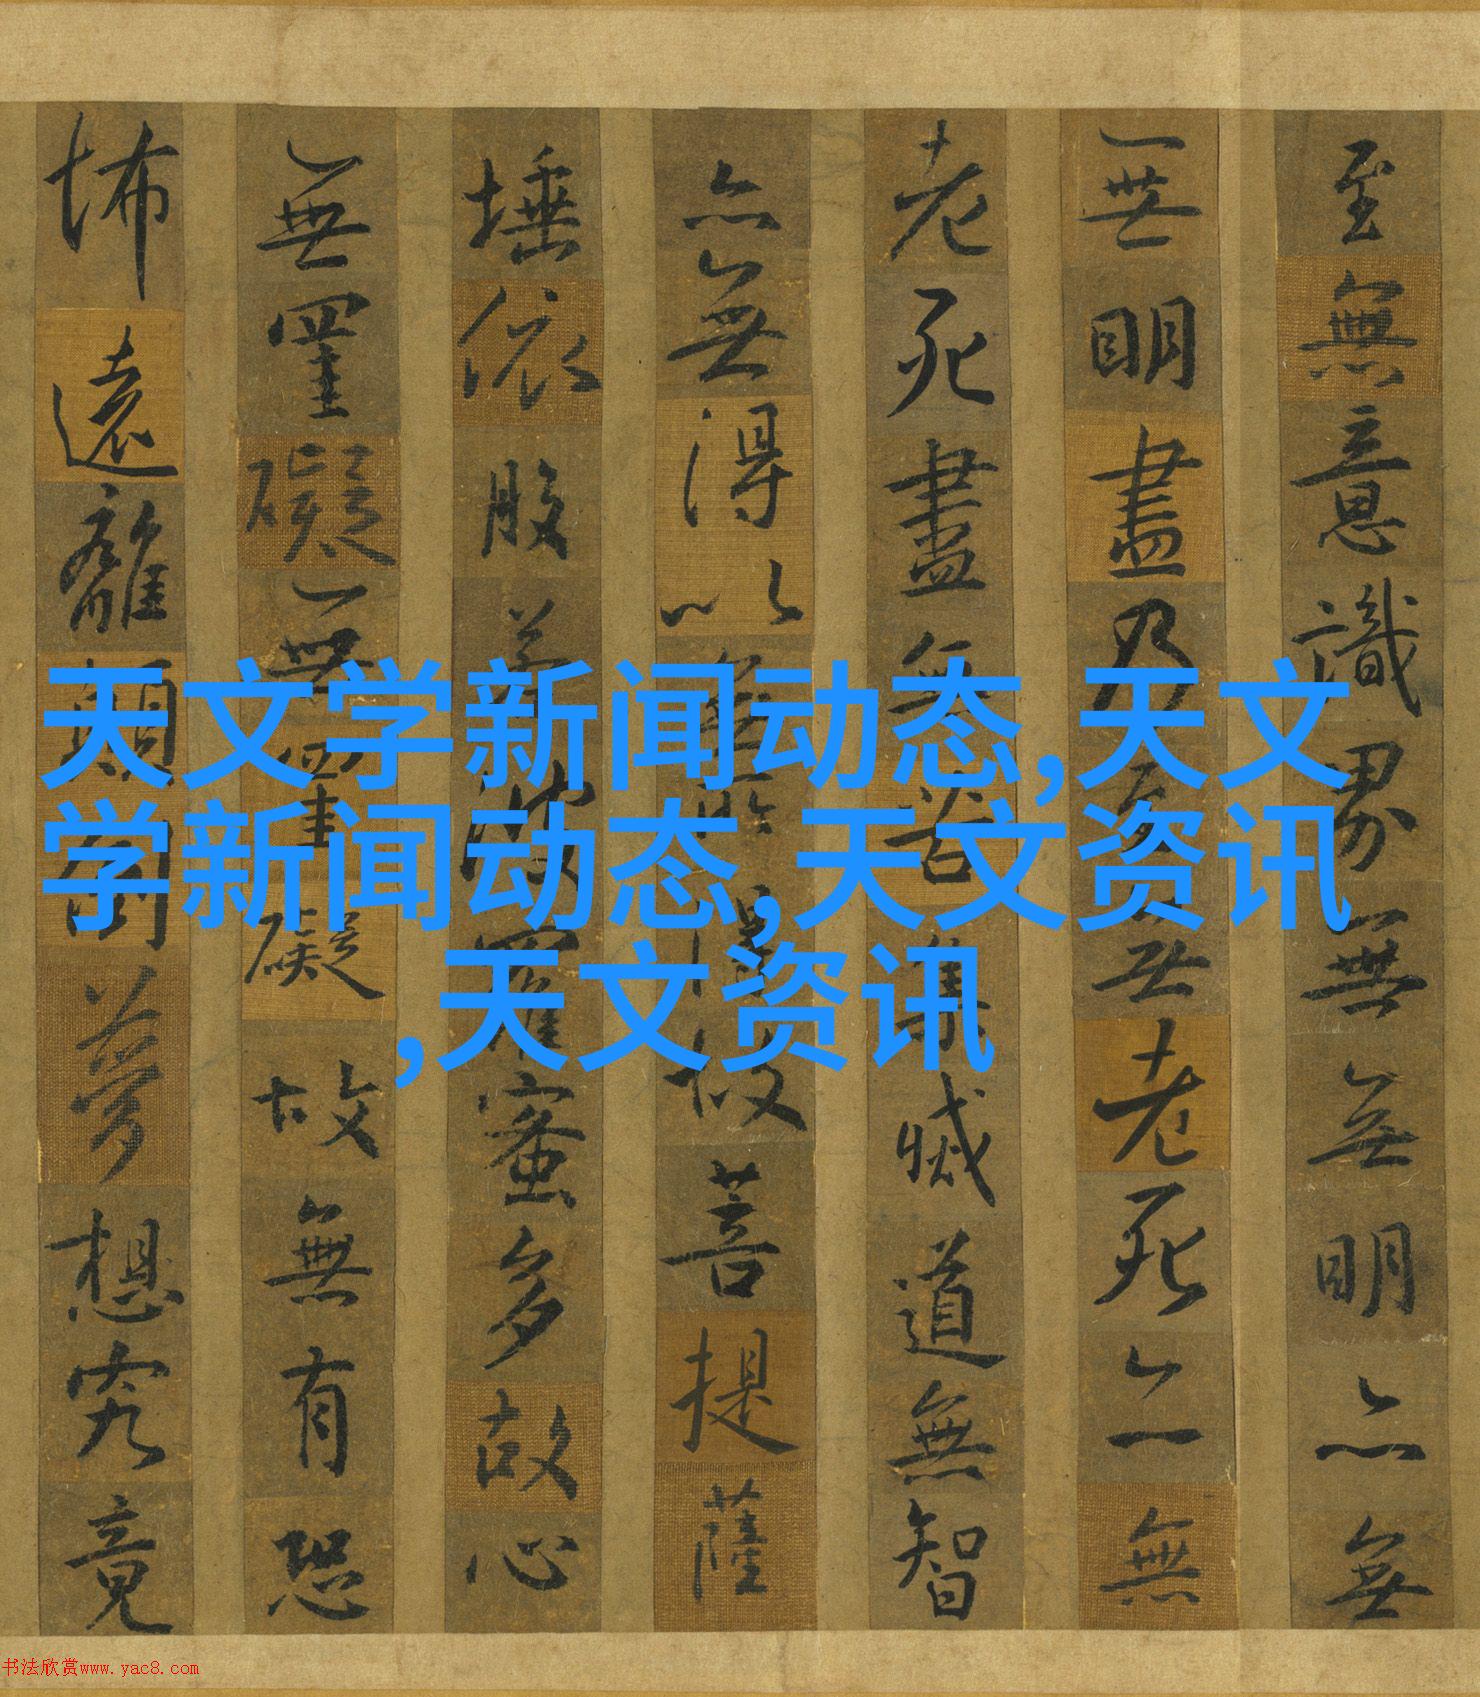 至無意識界無無明亦無
無明盡乃至無老死亦無
老死盡無苦集滅道無智
亦無得以無所得故菩提薩
埵依般若波羅蜜多故心
無罣礙無罣礙故無有恐
怖遠離顛倒夢想究竟
天文学新闻动态,天文
学新闻动态,天文资讯
,天文资讯
书法欣赏www.yac8.com